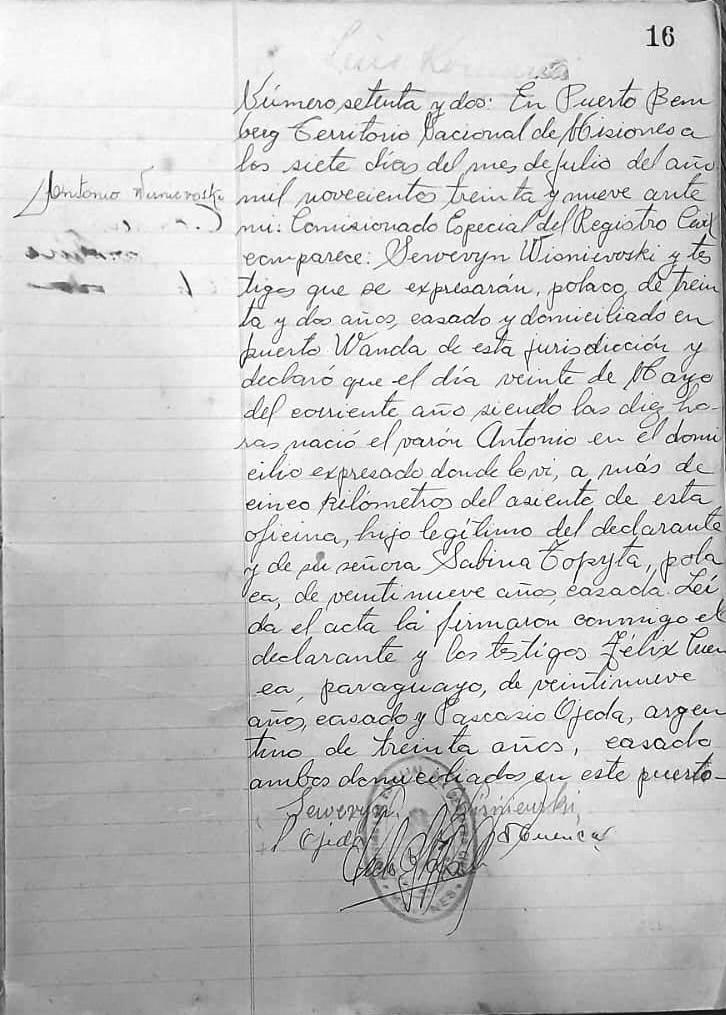 16
Número setenta y dos: En Puerto Bem
berg Territorio Nacional de Misiones a
los siete días del mes de julio del año
mil novecientos treinta y nueve ante
mi: Comisionado Especial del Registro Civil
comparece: Sewervyn Wisnievoski y tes
tigos que se expresarán, polaco, de trein
ta y dos años, casado y domiciliado en
puerto Wanda de esta jurisdicción y
declaró que el día veinte de Mayo
del corriente año siendo las diez ho-
ras nació el varón Antonio en el domi
cilio expresado donde lo vi, a más de
cinco kilómetros del asiento de esta
oficina, hijo legítimo del declarante
y de su señora Sabina Topyta, pola
ca, de veintinueve años, casada. Leí
da el acta la firmaron conmigo el
declarante y los testigos Félix Cuen
ca, paraguayo, de veintinueve
años, casado y Pascasio Ojeda, argen
tino de treinta años, casado
ambos domiciliados en este puerto-
Antonio Wisnievoski
Sewervyn Wisniewski
P Ojeda
F Cuenca